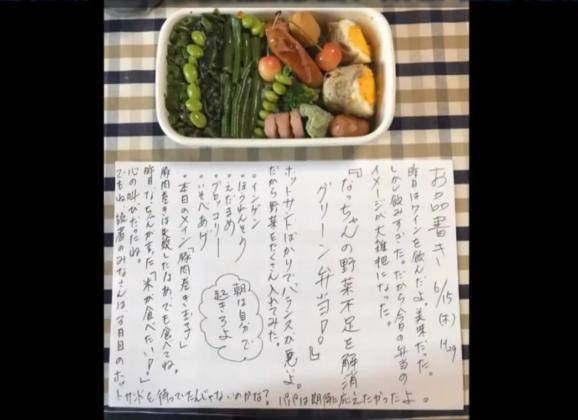 お品書き 6/15(木) H29
昨日はワインを飲んだよ。美味だった。
しかし飲みすぎた。だから今日の弁当の
イメージが大雑把になった。
『なっちゃんの野菜不足を解消
グリーン弁当!!』
ホットサンドばかりでバランスが悪いよ。
だから野菜をたくさん入れてみた。
・インゲン
・ほうれんそう
・えだまめ
・ブロッコリー
・いそべあげ
・本日のメイン「豚肉巻き玉子」
豚肉巻きは失敗したけどあでも食べてね。
昨日なっちゃんが言った「米が食べたい!」
心の叫びだったね。
でもね、読者のみなさんは3月目のホット
サンドを待っていたんじゃないのかな?パパは期待に応えたかったよ。
朝は自分で
起きろよ